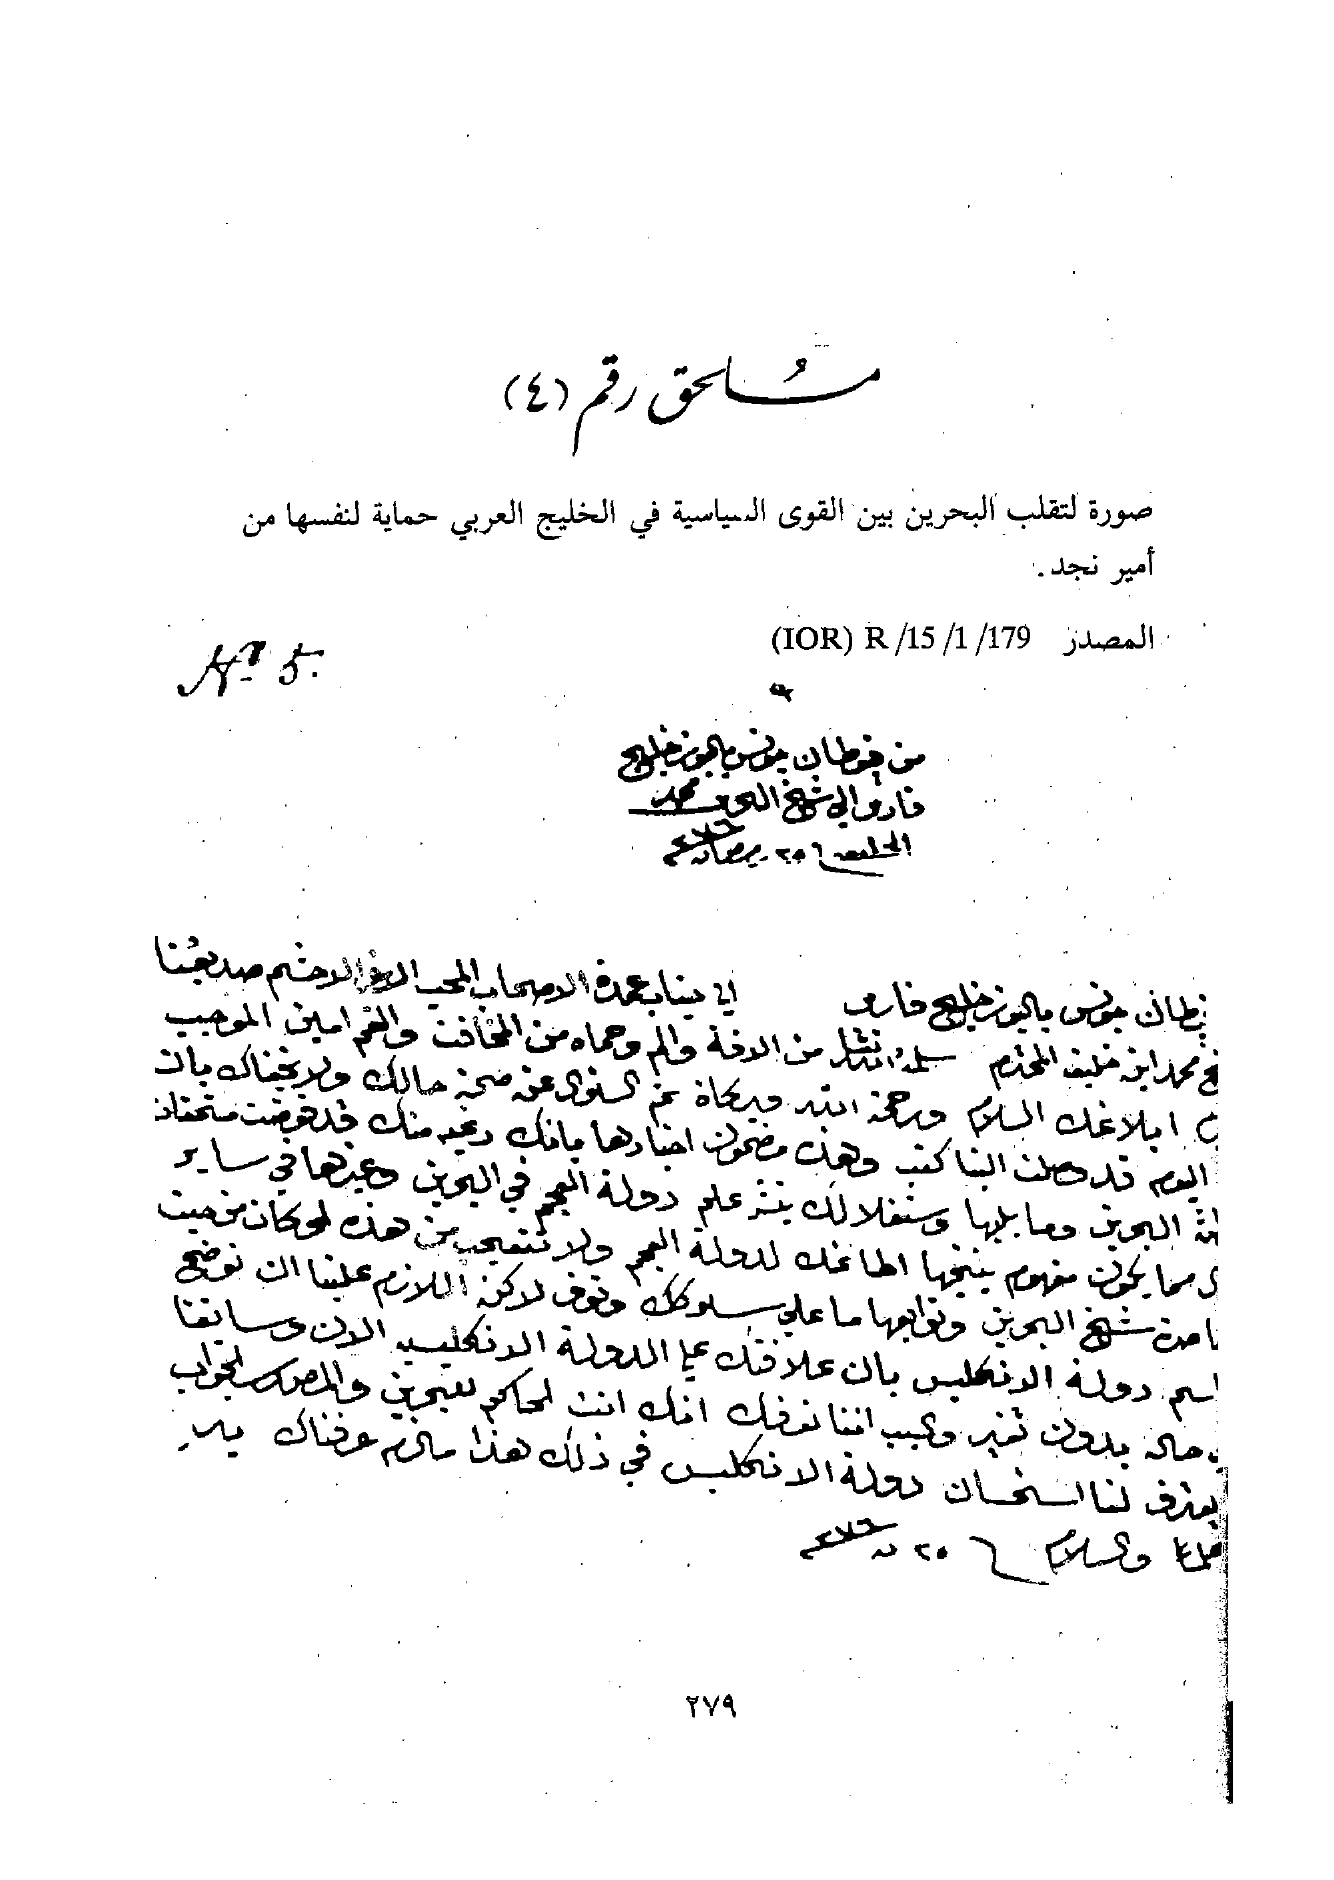 مُلحق رقم (٤)
صورة لتقلب البحرين بين القوى السياسية في الخليج العربي حماية لنفسها من
أمير نجد.
المصدر R /15 /1 /179 (IOR)
No 5.
من قبطان جونس باليوز خليج
فارس الى شيخ البحرين محمد
الخليفه ٢٥ رمضان ١٢٧٦
قبطان جونس باليوز خليج فارس الى جناب عمدة الاصحاب المحب الاعز الاحشم صديقنا
محمد ابن خليفه المحترم سلمه الله تعالى من الافة والم وحماه من المخافت والغم امين الموجب
ابلاغك السلام ورحمة الله وبركاة ثم السؤال عن صحة حالك ولا يخفاك بان
اليوم قد وصلت الينا كتب وهذه مضمون اخبارها بانك رغبه منك قد
البحرين وما يليها وستقلالك بنشر علم دولة العجم في البحرين وغيرها في ساير
مما يكون مفهوم بينجها اطاعك لدولة العجم ولا تتعجب من هذه الحركات من حيث
شيخ البحرين وتوابعها ما على سلوكك لاكن اللازم علينا ان نوضح
اسم دولة الانكليس بان علاقتك على الدولة الانكليسيه الان وسابقا
حاله بدون تغير ونحسب اننا نعرفك انك انت الحاكم للبحرين
يعترف لنا استحسان دولة الانكليس في ذلك هذا مالزم عرفناك
والسلام ٢٥ ن ١٢٧٦
٢٧٩